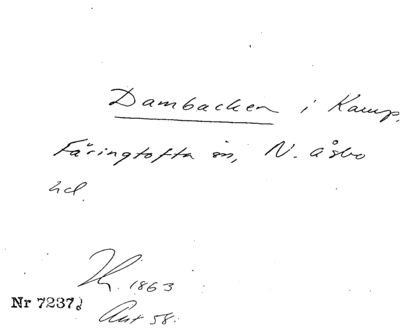 Dambacken i Kamp,
Färingtofta sn, N. Åsbo
hd.
1863
Nr 7237
Ant 58.